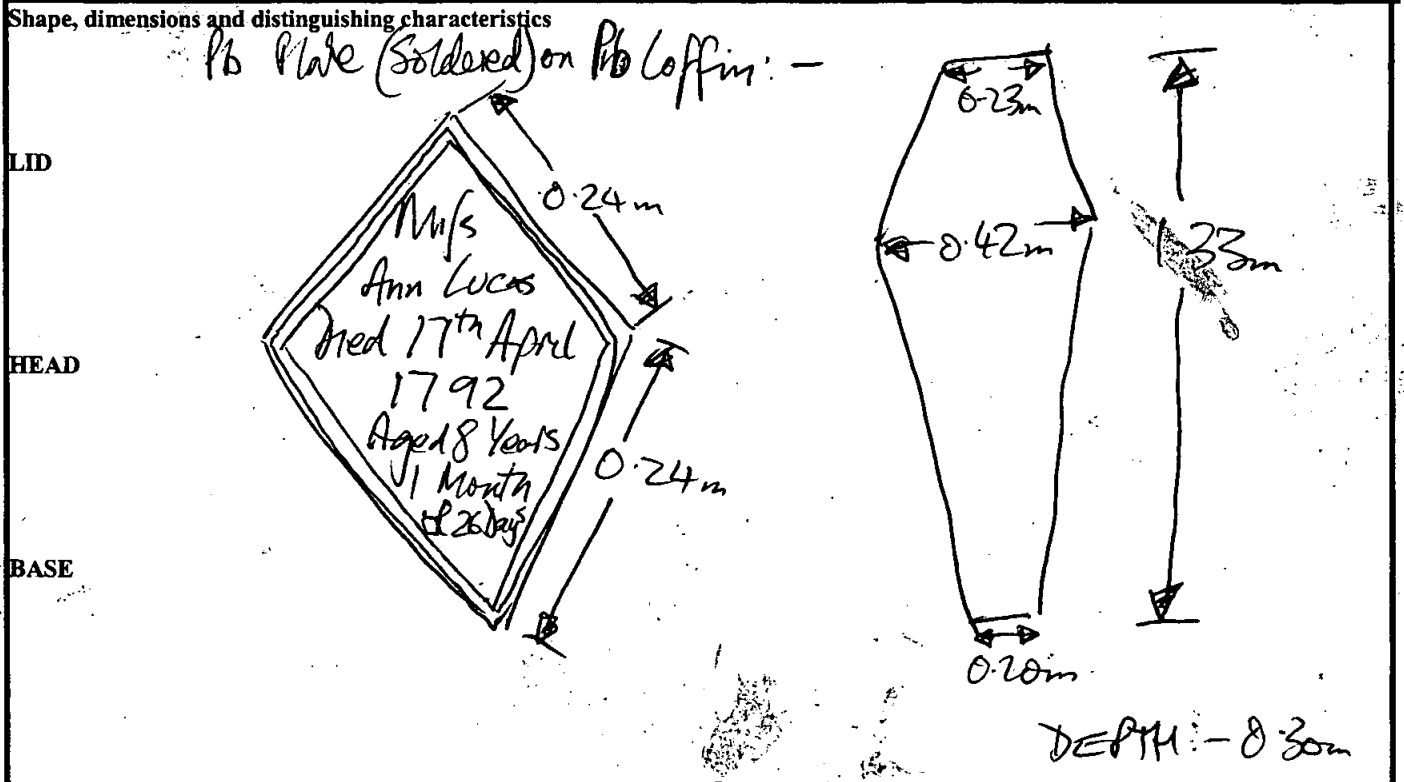 Shape, dimensions and distinguishing characteristics
Pb Plate (Soldered) on Pb Coffin: -
LID
HEAD
BASE
Miſs
Ann Lucas
Died 17th April
1792
Aged 8 Years
1 Month
& 26 Days
0.24m
0.24m
0.23m
0.42m
1.33m
0.20m
DEPTH: - 0.30m